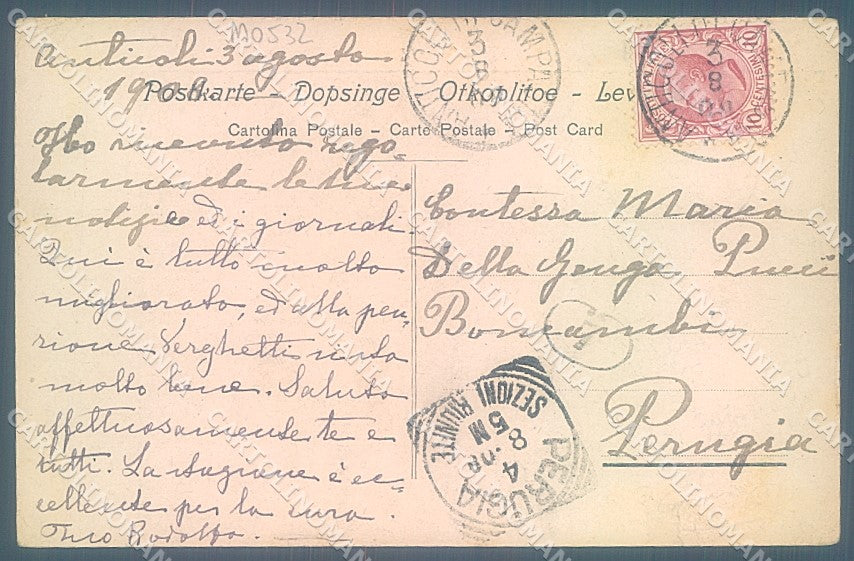 M0532
Anticoli 3 agosto
1908.
Postkarte – Dopsinge – Otkoplitoe – Lev
Cartolina Postale – Carte Postale – Post Card
Ho ricevuto rego-
larmente le tue
notizie ed i giornali
Qui è tutto molto
migliorato, ed alla pen-
sione Verghetti si sta
molto bene. Saluto
affettuosamente te e
tutti. La stagione è ec-
cellente per la cura.
Tuo Rodolfo.
Contessa Maria
Della Genga Pucci
Boncambi
Perugia
ANTICOLI DI CAMPAG
3
8
08
10 CENTESIMI 10
ANTICOLI DI
3
8
08
PERUGIA
4 - 08
8
5 M
SEZIONI RIUNITE
CARTOLINOMANIA